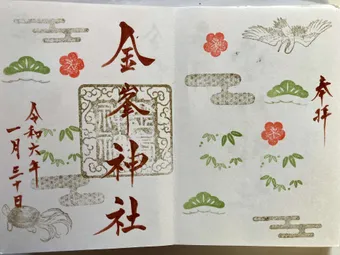 奉拝
金峯神社
令和六年
一月三十日